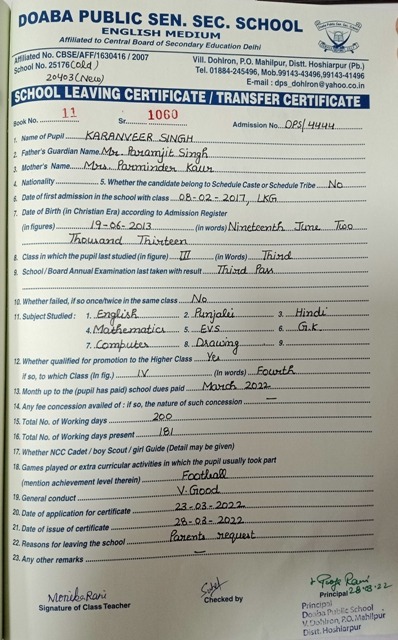 DOABA PUBLIC SEN. SEC. SCHOOL
ENGLISH MEDIUM
Affiliated to Central Board of Secondary Education Delhi
Affiliated No. CBSE/AFF/1630416 / 2007
School No. 25176(old)
20403(New)
Vill. Dohlron, P.O. Mahilpur, Distt. Hoshiarpur (Pb.)
Tel. 01884-245496, Mob.99143-43496,99143-41496
E-mail : dps_dohlron@yahoo.co.in
SCHOOL LEAVING CERTIFICATE / TRANSFER CERTIFICATE
Book No. 11 Sr. 1060 Admission No. DPS/4444
1. Name of Pupil KARANVEER SINGH
2. Father's Guardian Name Mr. Paramjit Singh
3. Mother's Name Mrs. Parminder Kaur
4. Nationality 5. Whether the candidate belong to Schedule Caste or Schedule Tribe No
6. Date of first admission in the school with class 08-02-2017, LKG
7. Date of Birth (in Christian Era) according to Admission Register
(in figures) 19-06-2013 (in words) Nineteenth June Two
Thousand Thirteen
8. Class in which the pupil last studied (in figure) III (in Words) Third
9. School / Board Annual Examination last taken with result Third Pass
10. Whether failed, if so once/twice in the same class No
11. Subject Studied : 1. English 2. Punjabi 3. Hindi
4. Mathematics 5. EVS 6. G.K.
7. Computer 8. Drawing 9.
12. Whether qualified for promotion to the Higher Class Yes
if so, to which Class (In fig.) IV (In words) Fourth
13. Month up to the (pupil has paid) school dues paid March 2022
14. Any fee concession availed of : if so, the nature of such concession —
15. Total No. of Working days 200
16. Total No. of Working days present 181
17. Whether NCC Cadet / boy Scout / girl Guide (Detail may be given)
18. Games played or extra curricular activities in which the pupil usually took part
(mention achievement level therein) Football
19. General conduct V. Good
20. Date of application for certificate 23-03-2022
21. Date of issue of certificate 28-03-2022
22. Reasons for leaving the school Parents request
23. Any other remarks —
Monika Rani
Signature of Class Teacher
Checked by
Principal 28-03-22
Principal
Doaba Public School
V. Dohlron, P.O. Mahilpur
Distt. Hoshiarpur